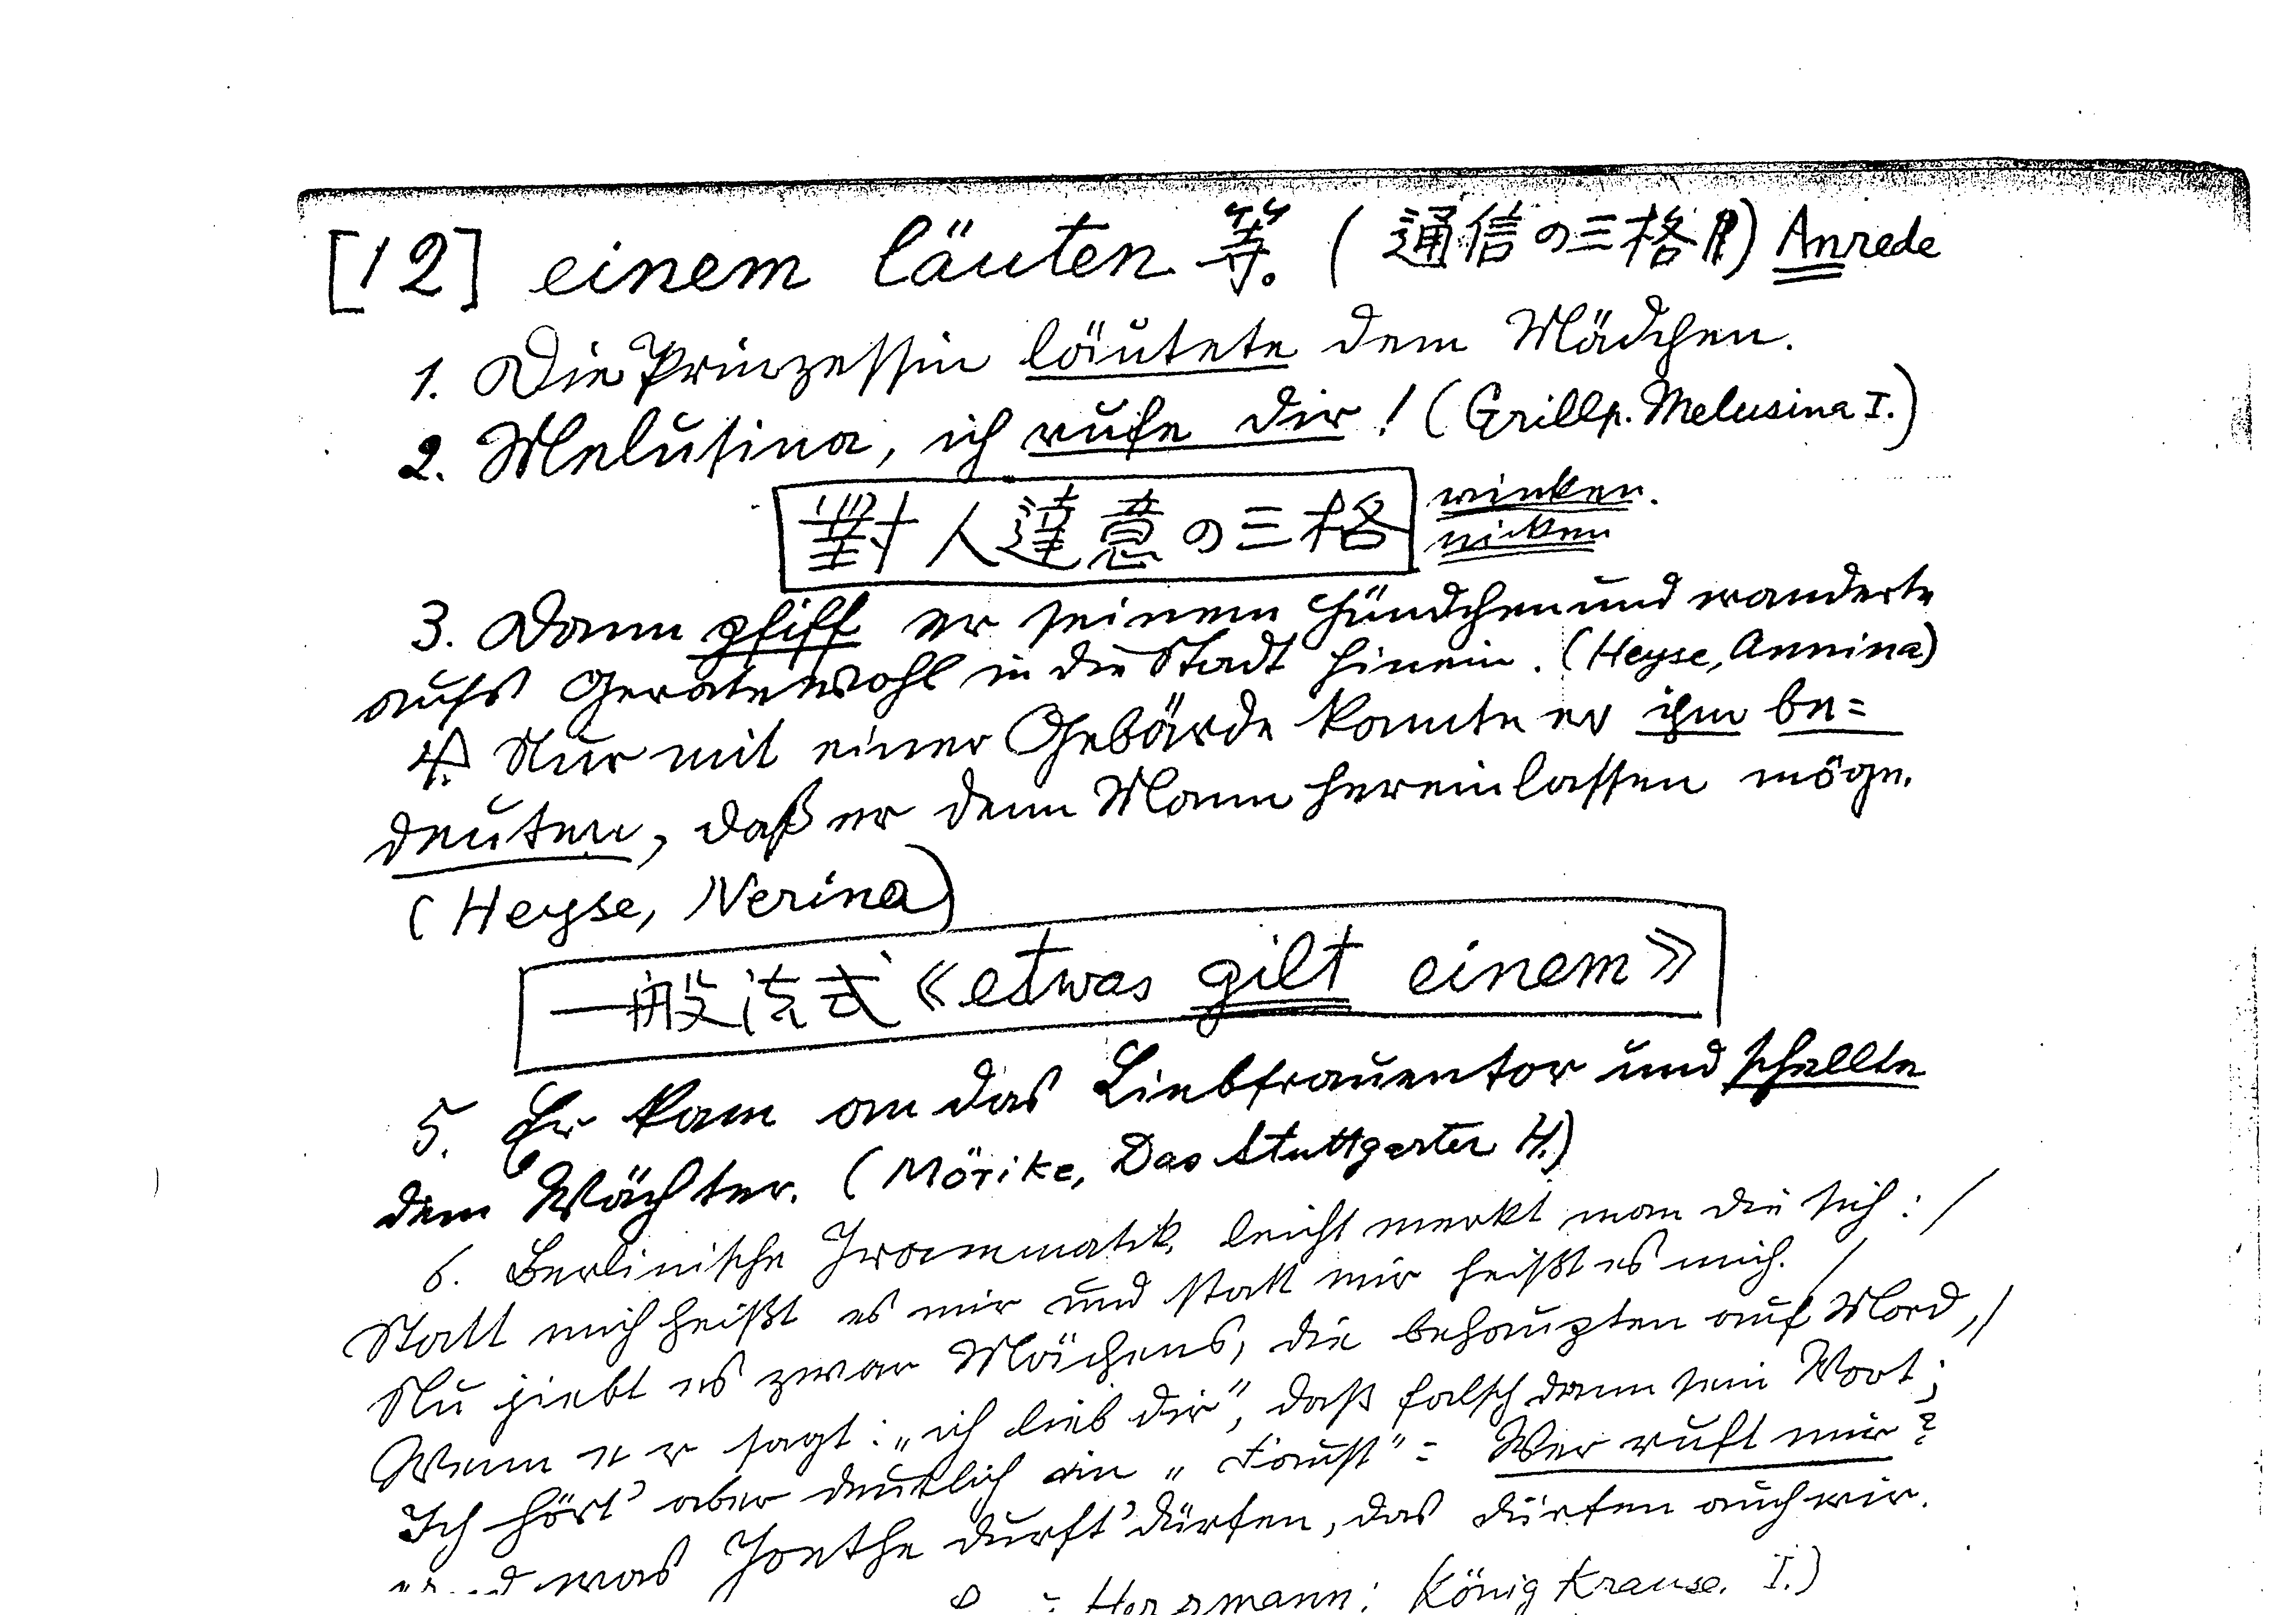 [12] einem läuten 等. (通信の三格) Anrede
1. Die Prinzessin läutete dem Mädchen.
2. Melusina, ich rufe dir! (Grillp. Melusina I.)
對人達意の三格 winken.
nicken
3. Dann pfiff er seinem Hündchen und wanderte
aufs Geratewohl in die Stadt hinein. (Heyse, Annina)
4. Nur mit einer Gebärde konnte er ihm be=
deuten, daß er den Mann hereinlassen möge.
(Heyse, Nerina)
一般法式 «etwas gilt einem»
5. Er kam an das Liebfrauentor und schellte
dem Wächter. (Mörike, Das Stuttgarter H.)
6. Berlinische Jrammatik, leicht merkt man die sich: /
Statt mich heißt es mir und statt mir heißt es mich. /
Nu jiebt es zwar Mächens, die behaupten auf Mord, //
Wenn er sagt: „ich lieb dir", daß falsch dann sein Wort;
Ich hört' aber deutlich im „Faust" = Wer ruft mir?
und was Joethe durft' dürfen, das dürfen auch wir.
Herrmann: König Krause. I.)